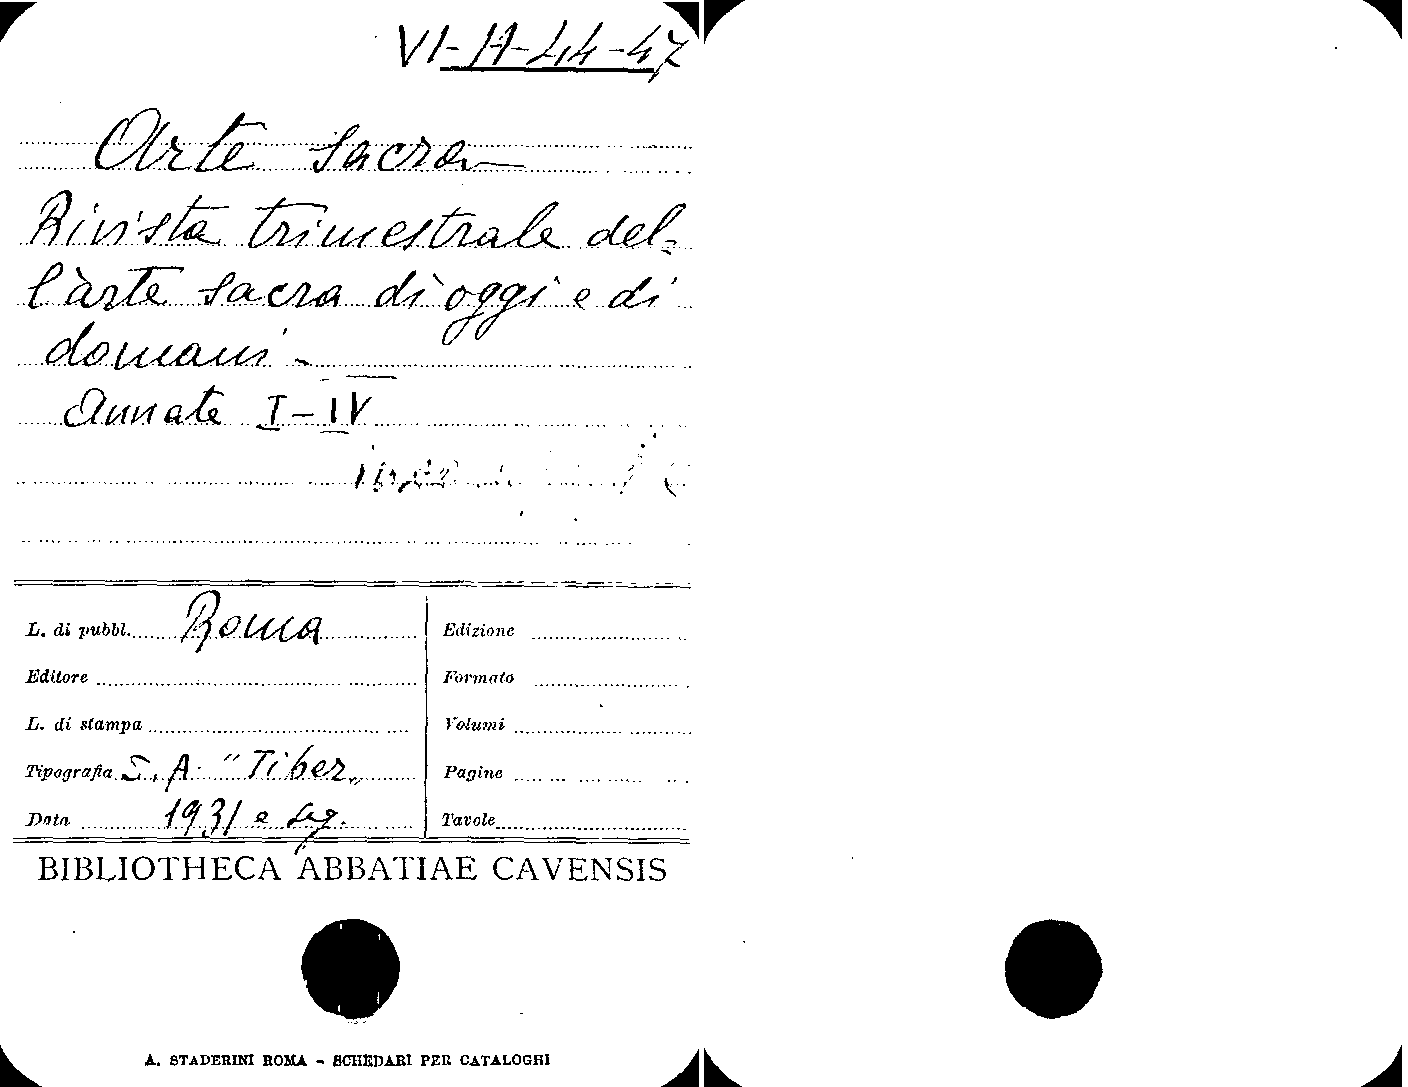 VI-A-44-47
Arte sacra
Rivista trimestrale del-
l'arte sacra di oggi e di
domani -
Annate I-IV
L. di pubbl. Roma
Editore
L. di stampa
Tipografia S. A. "Tiber"
Data 1931 e seg.
Edizione
Formato
Volumi
Pagine
Tavole
BIBLIOTHECA ABBATIAE CAVENSIS
A. STADERINI ROMA - SCHEDARI PER CATALOGHI